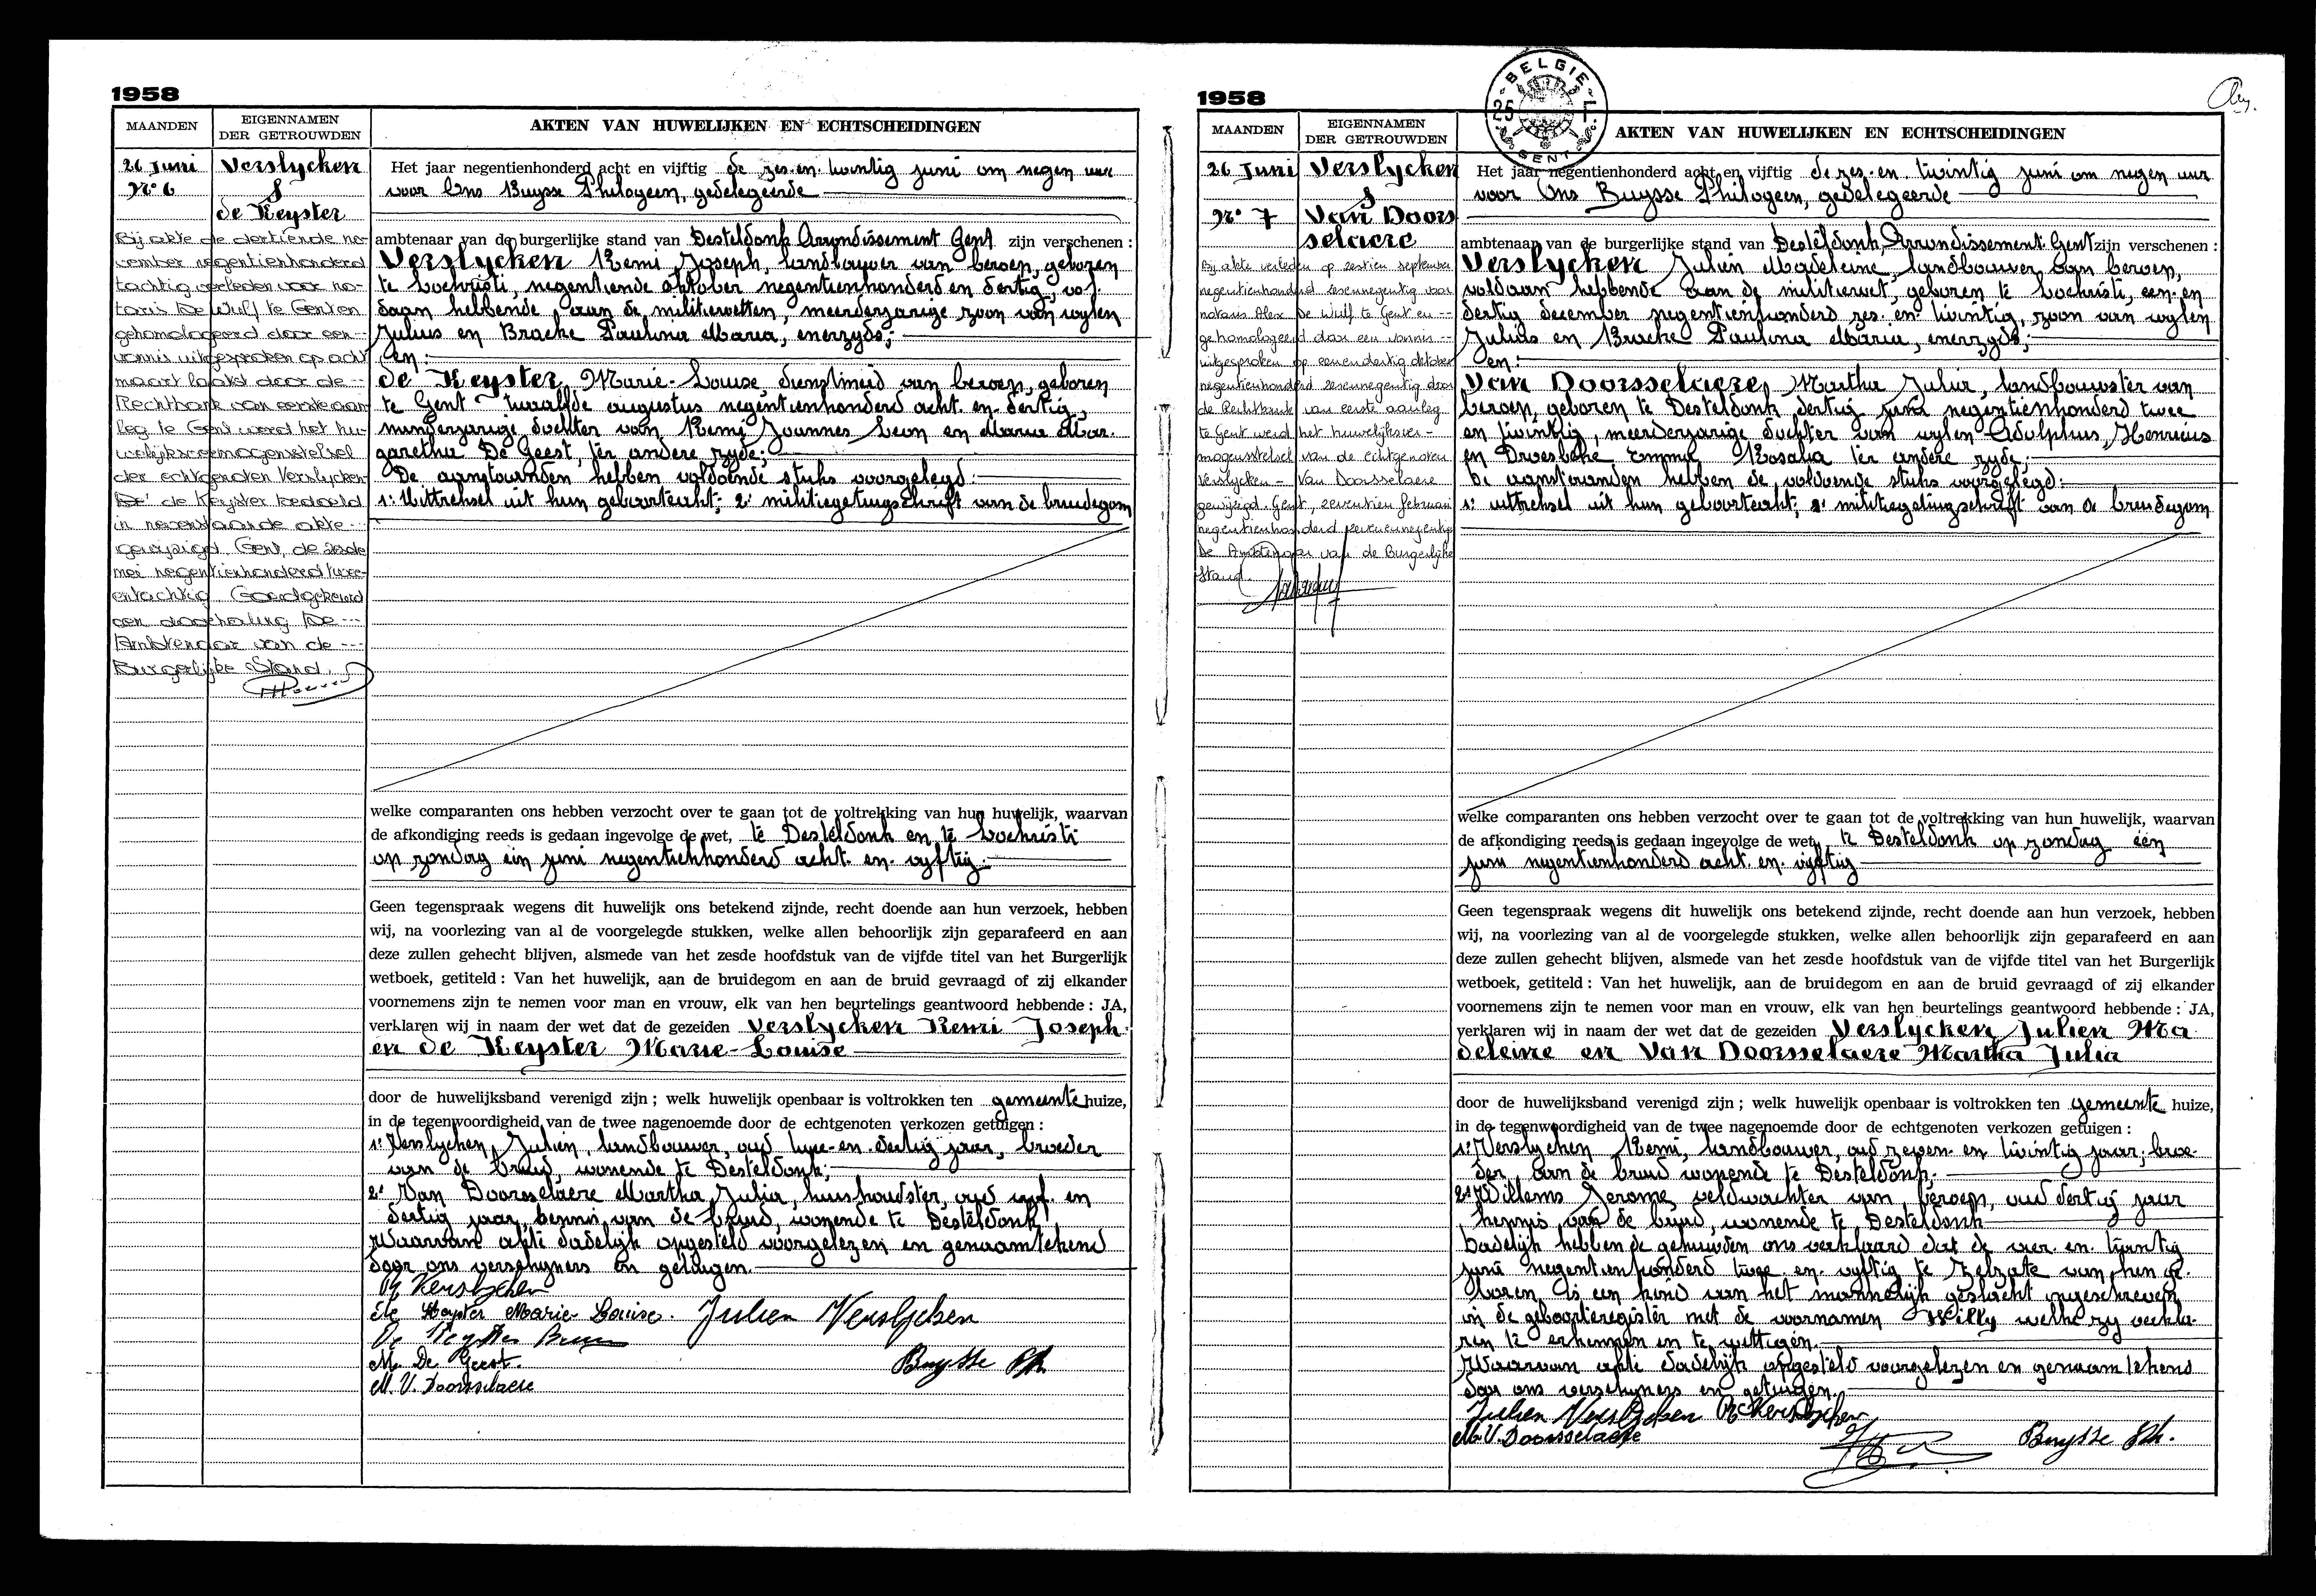 1958
MAANDEN
EIGENNAMEN
DER GETROUWDEN
AKTEN VAN HUWELIJKEN EN ECHTSCHEIDINGEN
26 Juni
N° 6
Verslycken
&
de Keyster
Bij akte de dertiende no-
vember negentienhonderd
tachtig verleden voor no-
taris De Wulf te Gent en
gehomologeerd door een --
vonnis uitgesproken op acht
maart laatst door de ---
Rechtbank van eerste aan
leg te Gent werd het hu-
welijksvermogensstelsel
der echtgenoten Verslycken-
de Keyster bedoeld
in nevenstaande akte ---
gewijzigd. Gent, de zesde
mei negentienhonderd twee-
entachtig Goedgekeurd
een doorhaling De ---
Ambtenaar van de ---
Burgerlijke Stand.
Het jaar negentienhonderd acht en vijftig de zes-en-twintig juni om negen uur
voor Ons Buysse Philogeen, gedelegeerde
ambtenaar van de burgerlijke stand van Desteldonk Arrondissement Gent zijn verschenen :
Verslycken Remi Joseph, landbouwer van beroep, geboren
te Lochristi, negentiende oktober negentienhonderd en dertig, vol-
daan hebbende aan de militiewetten, meerderjarige zoon van wylen
Julius en Bracke Paulina Maria, enerzyds;
en:
de Keyster, Marie-Louise dienstmeid van beroep, geboren
te Gent twaalfde augustus negentienhonderd acht-en-dertig,
minderjarige dochter van Remi Joannes Leon en Maria Mar-
garetha De Geest, ter andere zyde;
De aanstaanden hebben voldoende stuks voorgelegd:
1° Uittreksel uit hun geboorteakt; 2° militiegetuigschrift van de bruidegom
welke comparanten ons hebben verzocht over te gaan tot de voltrekking van hun huwelijk, waarvan
de afkondiging reeds is gedaan ingevolge de wet, te Desteldonk en te Lochristi
op zondag één juni negentienhonderd acht-en-vyftig.
Geen tegenspraak wegens dit huwelijk ons betekend zijnde, recht doende aan hun verzoek, hebben
wij, na voorlezing van al de voorgelegde stukken, welke allen behoorlijk zijn geparafeerd en aan
deze zullen gehecht blijven, alsmede van het zesde hoofdstuk van de vijfde titel van het Burgerlijk
wetboek, getiteld : Van het huwelijk, aan de bruidegom en aan de bruid gevraagd of zij elkander
voornemens zijn te nemen voor man en vrouw, elk van hen beurtelings geantwoord hebbende : JA,
verklaren wij in naam der wet dat de gezeiden Verslycken Remi Joseph
en de Keyster Marie-Louise
door de huwelijksband verenigd zijn ; welk huwelijk openbaar is voltrokken ten gemeente huize,
in de tegenwoordigheid van de twee nagenoemde door de echtgenoten verkozen getuigen :
1° Verslycken Julien, landbouwer, oud twee-en-dertig jaar, broeder
van de bruid, wonende te Desteldonk;
2° Van Doorselaere Martha Julia, huishoudster, oud vyf-en
dertig jaar, kennis van de bruid, wonende te Desteldonk
Waarvan akte dadelijk opgesteld voorgelezen en genaamtekend
door ons verschyners en getuigen.
R Verslycken
de Keyster Marie-Louise. Julien Verslycken
De Keyster
M. De Geest. Buysse Ph.
M. V. Doorsselaere
1958
BELGIE
25 F
GENT
MAANDEN
EIGENNAMEN
DER GETROUWDEN
AKTEN VAN HUWELIJKEN EN ECHTSCHEIDINGEN
26 Juni
N° 7
Verslycken
&
Van Doors
selaere
Bij akte verleden op zestien september
negentienhonderd zesennegentig voor
notaris Alex De Wulf te Gent en --
gehomologeerd door een vonnis ---
uitgesproken op eenendertig oktober
negentienhonderd zesennegentig door
de Rechtbank van eerste aanleg
te Gent werd het huwelijksver-
mogensstelsel van de echtgenoten
Verslycken - Van Doorsselaere
gewijzigd. Gent, zeventien februari
negentienhonderd zevenennegentig
De Ambtenaar van de Burgerlijke
Stand.
Het jaar negentienhonderd acht en vijftig de zes-en-twintig juni om negen uur
voor Ons Buysse Philogeen, gedelegeerde
ambtenaar van de burgerlijke stand van Desteldonk, Arrondissement Gent zijn verschenen :
Verslycken Julien Madeleine, landbouwer van beroep,
voldaan hebbende aan de militiewet, geboren te Lochristi, een-en
dertig december negentienhonderd zes-en-twintig, zoon van wylen
Julius en Bracke Paulina Maria, enerzyds;
en:
Van Doorsselaere, Martha Julia, landbouwster van
beroep, geboren te Desteldonk dertig juni negentienhonderd twee
en twintig, meerderjarige dochter van wylen Adolphus, Henricus
en Emma Rosalia ter andere zyde;
De aanstaanden hebben de voldoende stuks voorgelegd:
1° uittreksel uit hun geboorteakt; 2° militiegetuigschrift van de bruidegom
welke comparanten ons hebben verzocht over te gaan tot de voltrekking van hun huwelijk, waarvan
de afkondiging reeds is gedaan ingevolge de wet, te Desteldonk op zondag één
juni negentienhonderd acht-en-vijftig
Geen tegenspraak wegens dit huwelijk ons betekend zijnde, recht doende aan hun verzoek, hebben
wij, na voorlezing van al de voorgelegde stukken, welke allen behoorlijk zijn geparafeerd en aan
deze zullen gehecht blijven, alsmede van het zesde hoofdstuk van de vijfde titel van het Burgerlijk
wetboek, getiteld : Van het huwelijk, aan de bruidegom en aan de bruid gevraagd of zij elkander
voornemens zijn te nemen voor man en vrouw, elk van hen beurtelings geantwoord hebbende : JA,
verklaren wij in naam der wet dat de gezeiden Verslycken Julien Ma
deleine en Van Doorsselaere Martha Julia
door de huwelijksband verenigd zijn ; welk huwelijk openbaar is voltrokken ten gemeente huize,
in de tegenwoordigheid van de twee nagenoemde door de echtgenoten verkozen getuigen :
1° Verslycken Remi, landbouwer, oud zeven-en twintig jaar; broe-
der van de bruid wonende te Desteldonk.
2° Willems Jerome veldwachter van beroep, oud dertig jaar
kennis van de bruid, wonende te Desteldonk
Dadelijk hebben de gehuwden ons verklaard dat de vier-en-twintig
juni negentienhonderd twee-en-vyftig te Zelzate van hen ge-
boren is een kind van het mannelijk geslacht ingeschreven
in de geboorteregister met de voornamen Willy welke zy verkla-
ren te erkennen en te wettigen.
Waarvan akte dadelijk opgesteld voorgelezen en genaamtekend
door ons verschyners en getuigen.
Julien Verslycken R Verslycken
M. V. Doorsselaere Buysse Ph.